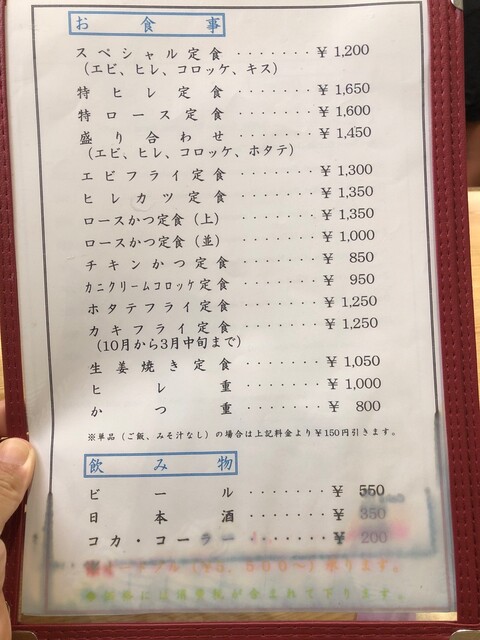 お食事
スペシャル定食 ・・・・・・・ ¥ 1,200
(エビ、ヒレ、コロッケ、キス)
特ヒレ定食 ・・・・・・・ ¥ 1,650
特ロース定食 ・・・・・・・ ¥ 1,600
盛り合わせ ・・・・・・・ ¥ 1,450
(エビ、ヒレ、コロッケ、ホタテ)
エビフライ定食 ・・・・・・・ ¥ 1,300
ヒレカツ定食 ・・・・・・・ ¥ 1,350
ロースかつ定食(上) ・・・・・・・ ¥ 1,350
ロースかつ定食(並) ・・・・・・・ ¥ 1,000
チキンかつ定食 ・・・・・・・ ¥ 850
カニクリームコロッケ定食 ・・・・・・・ ¥ 950
ホタテフライ定食 ・・・・・・・ ¥ 1,250
カキフライ定食 ・・・・・・・ ¥ 1,250
(10月から3月中旬まで)
生姜焼き定食 ・・・・・・・ ¥ 1,050
ヒレ重 ・・・・・・・ ¥ 1,000
かつ重 ・・・・・・・ ¥ 800
※単品(ご飯、みそ汁なし)の場合は上記料金より¥150円引きます。
飲み物
ビール ・・・・・・・ ¥ 550
日本酒 ・・・・・・・ ¥ 350
コカ・コーラー ・・・・・・ ¥ 200